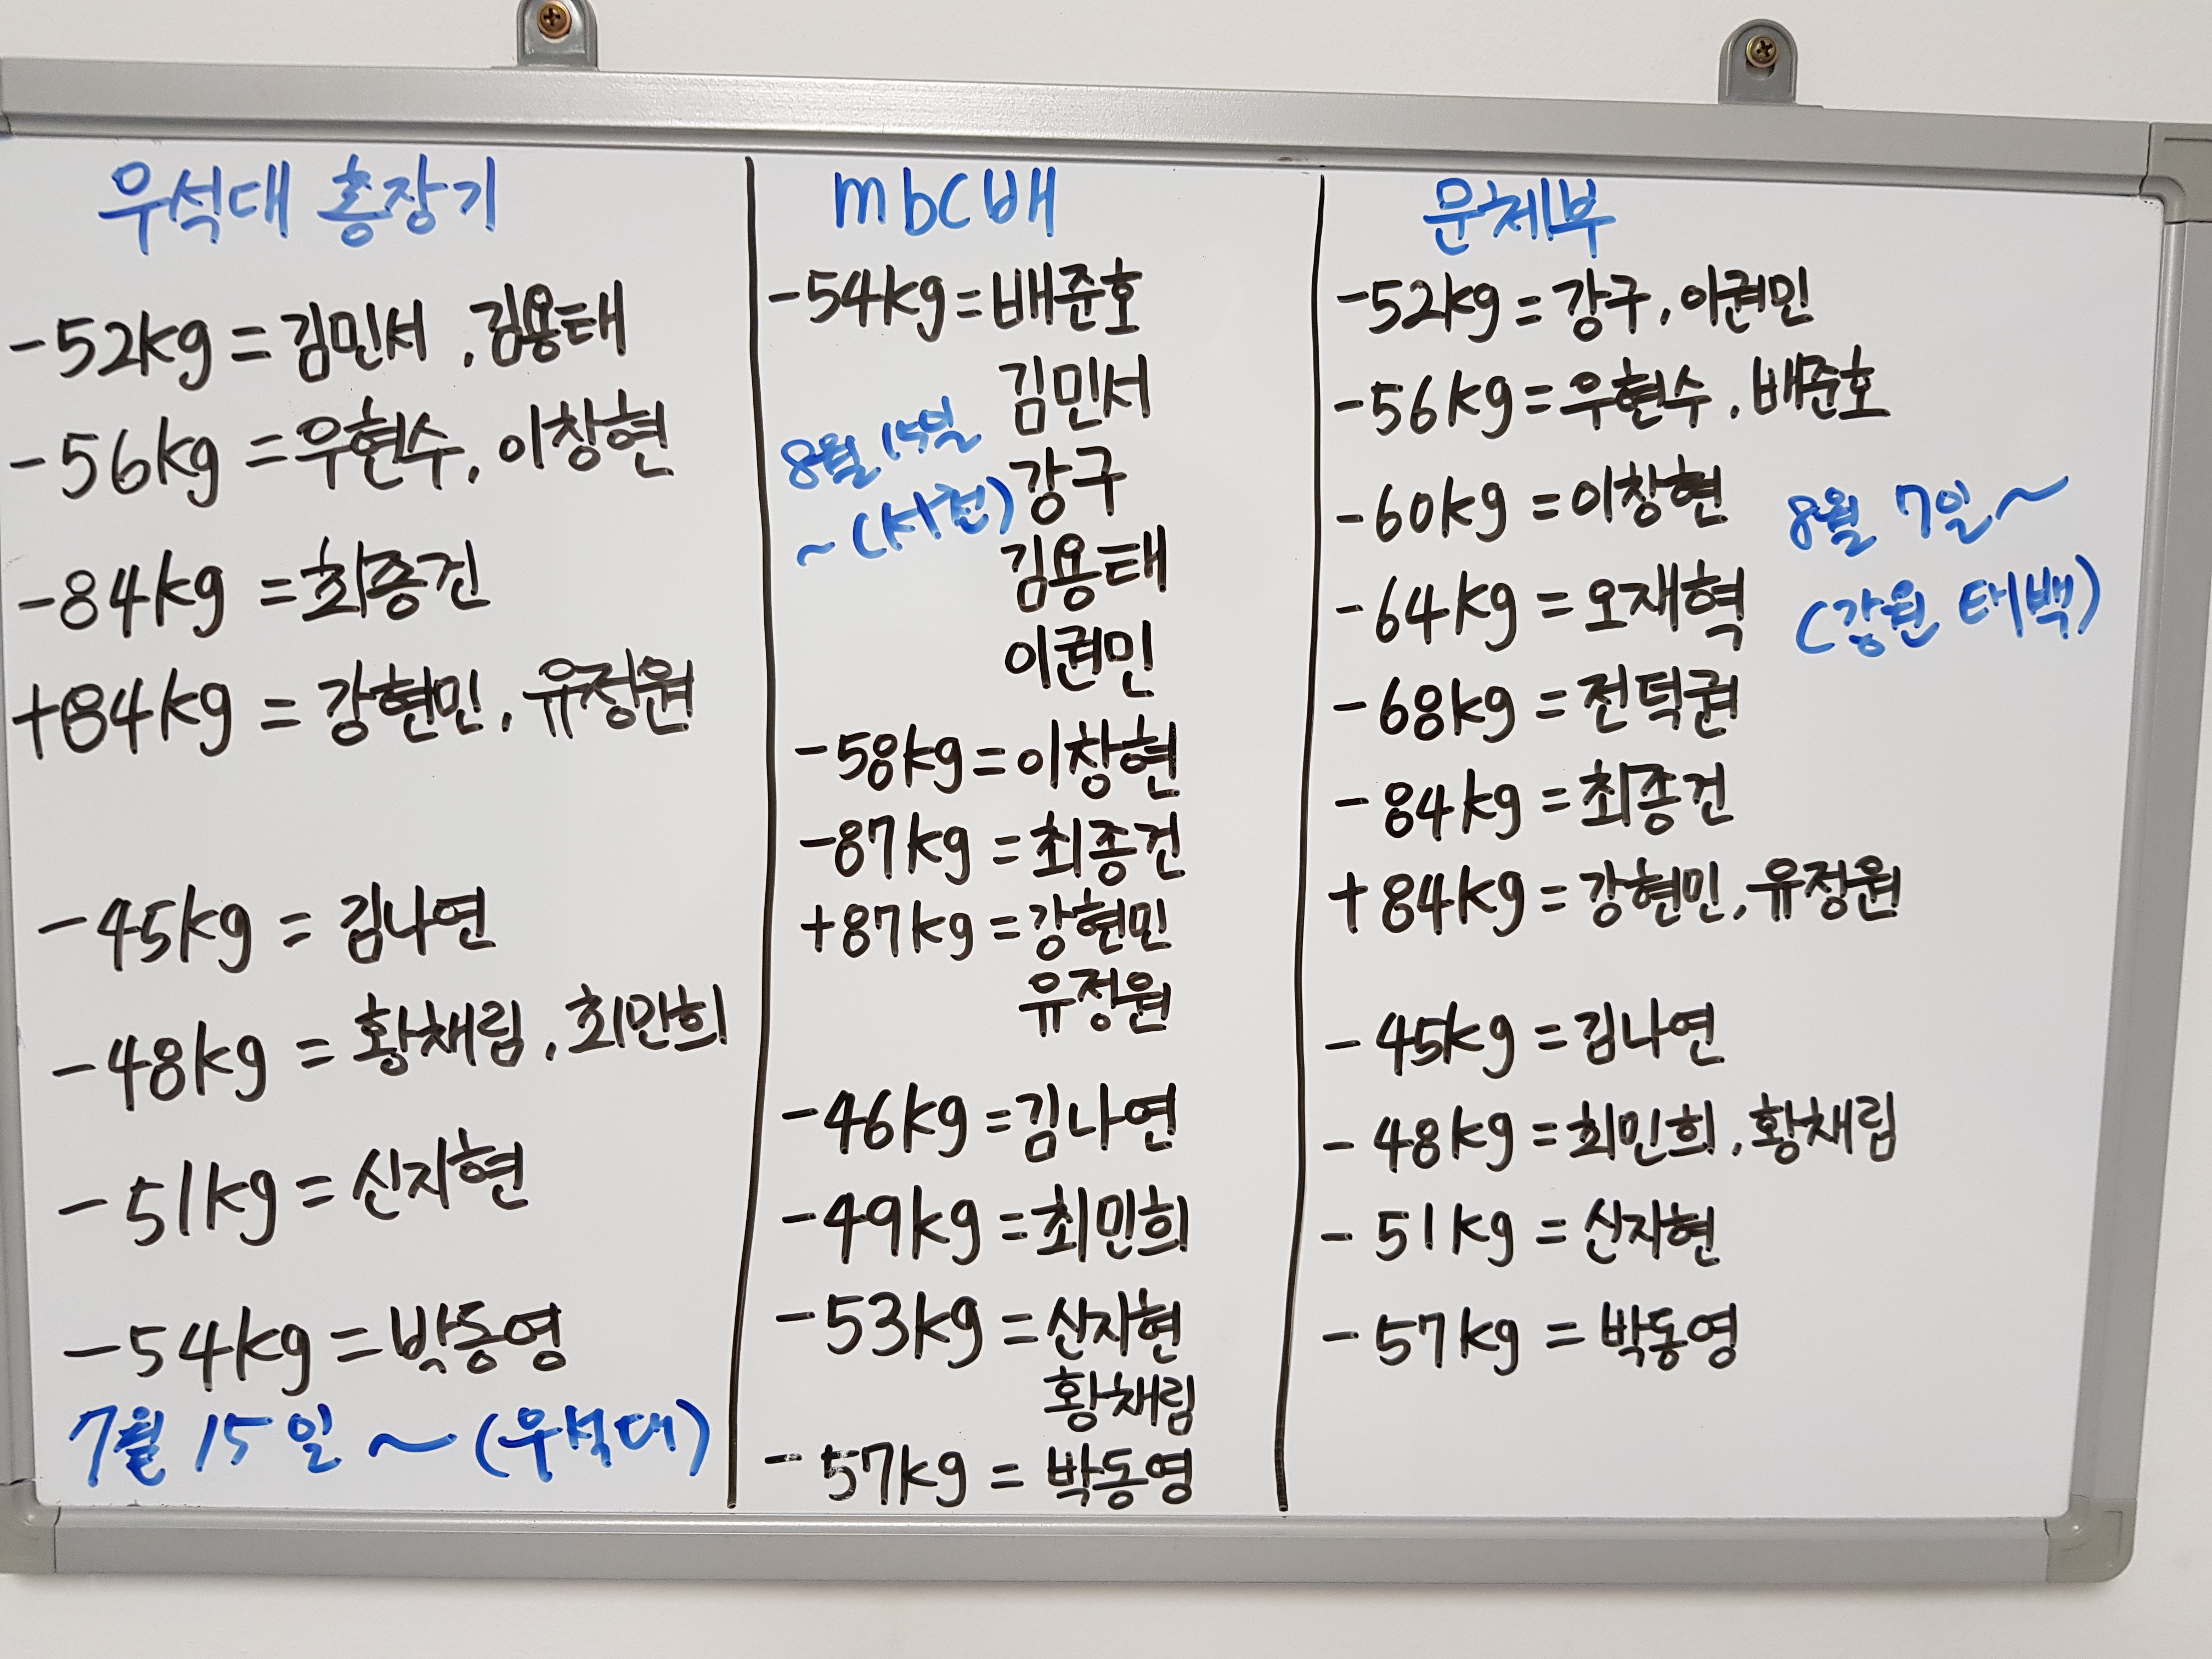 우석대 총장기
-52kg = 김민서, 김용태
-56kg = 우현수, 이창현
-84kg = 최종건
+84kg = 강현민, 유정원
-45kg = 김나연
-48kg = 황채림, 최민희
-51kg = 신지현
-54kg = 박동영
7월 15일 ~ (우석대)
mbc배
-54kg = 배준호
김민서
8월 15일
강구
~ (사전)
김용태
이권민
-58kg = 이창현
-87kg = 최종건
+87kg = 강현민
유정원
-46kg = 김나연
-49kg = 최민희
-53kg = 신지현
황채림
-57kg = 박동영
문체부
-52kg = 강구, 이권민
-56kg = 우현수, 배준호
-60kg = 이창현
8월 7일 ~
-64kg = 오재혁
(강원 태백)
-68kg = 전덕권
-84kg = 최종건
+84kg = 강현민, 유정원
-45kg = 김나연
-48kg = 최민희, 황채림
-51kg = 신지현
-57kg = 박동영